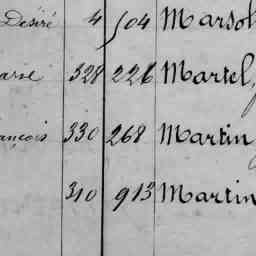 Désiré 4 504 Marsol
328 226 Martel,
ançois 330 268 Martin
310 913 Martin